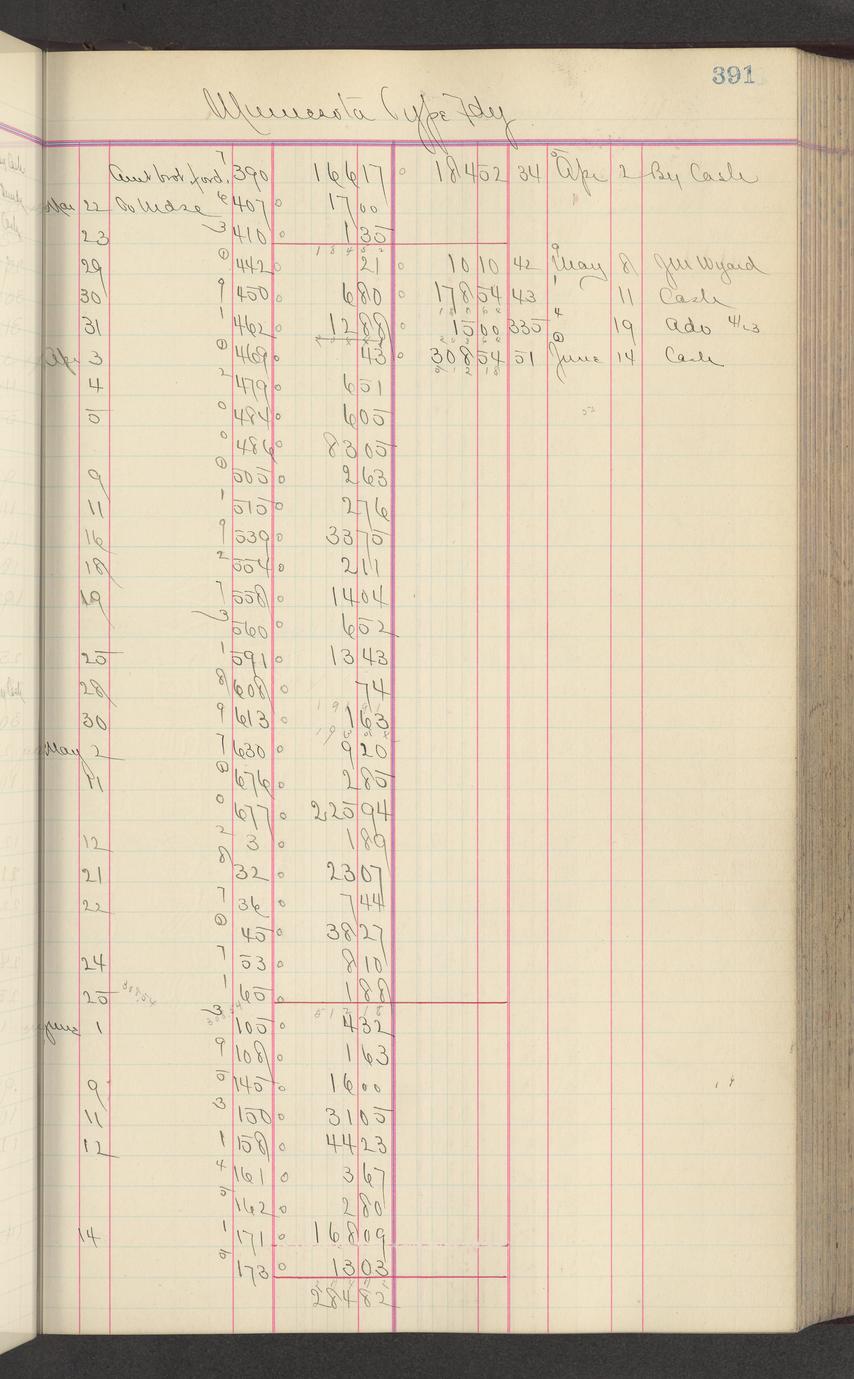 391
Minnesota Type Fdy
Amt brot ford. 7 390 166 17 184 52 34 Apr 2 By Cash
Mar 22 To Mdse 6 407 17 00
23 3 410 1 35
18452
29 0 442 21 10 10 42 May 8 JM Wyard
30 9 450 6 80 178 54 43 11 Cash
31 1 462 12 88 15 00 335 19 Ado 4/23
Apr 3 0 469 43 308 54 51 June 14 Cash
4 2 479 6 51
5 0 484 6 05
0 486 83 05
9 0 505 2 63
11 1 515 2 76
16 9 539 33 75
18 2 554 2 11
19 7 558 14 04
3 560 6 52
25 1 591 13 43
28 8 608 74
30 9 613 1 63
May 2 7 630 9 20
11 0 676 2 85
0 677 225 94
12 2 3 1 89
21 8 32 23 07
22 7 36 7 44
0 45 38 27
24 7 53 8 10
25 1 65 1 88
June 1 3 105 4 32
9 108 1 63
9 5 145 16 00
11 3 150 31 05
12 1 158 44 23
4 161 3 67
5 162 2 80
14 1 171 168 09
5 173 13 03
284 82